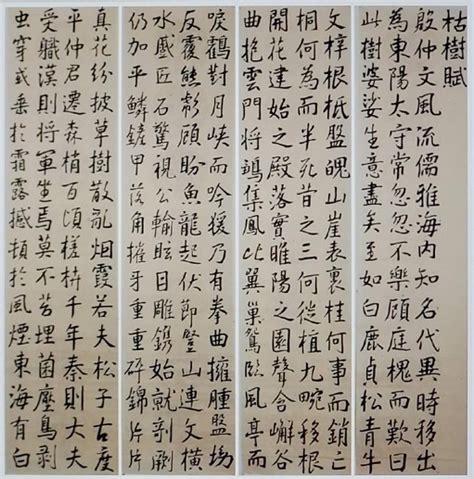 枯樹賦
殷仲文風流儒雅海內知名代異時移出
為東陽太守常忽忽不樂顧庭槐而歎曰
此樹婆娑生意盡矣至如白鹿貞松青牛
文梓根柢盤魄山崖表裏桂何事而銷亡
桐何為而半死昔之三何從植九畹移根
開花建始之殿落實睢陽之園聲合嶰谷
曲抱雲門將鶵集鳳比翼巢鴛臨風亭而
唳鶴對月峽而吟猨乃有拳曲擁腫盤坳
反覆熊彪顧盼魚龍起伏節豎山連文橫
水蹙匠石驚視公輸眩目雕鐫始就剞劂
仍加平鱗鏟甲落角摧牙重重碎錦片片
真花紛披草樹散亂烟霞若夫松子古度
平仲君遷森梢百頃槎枿千年秦則大夫
受職漢則將軍坐焉莫不苔埋菌壓鳥剥
虫穿或垂於霜露撼頓於風煙東海有白